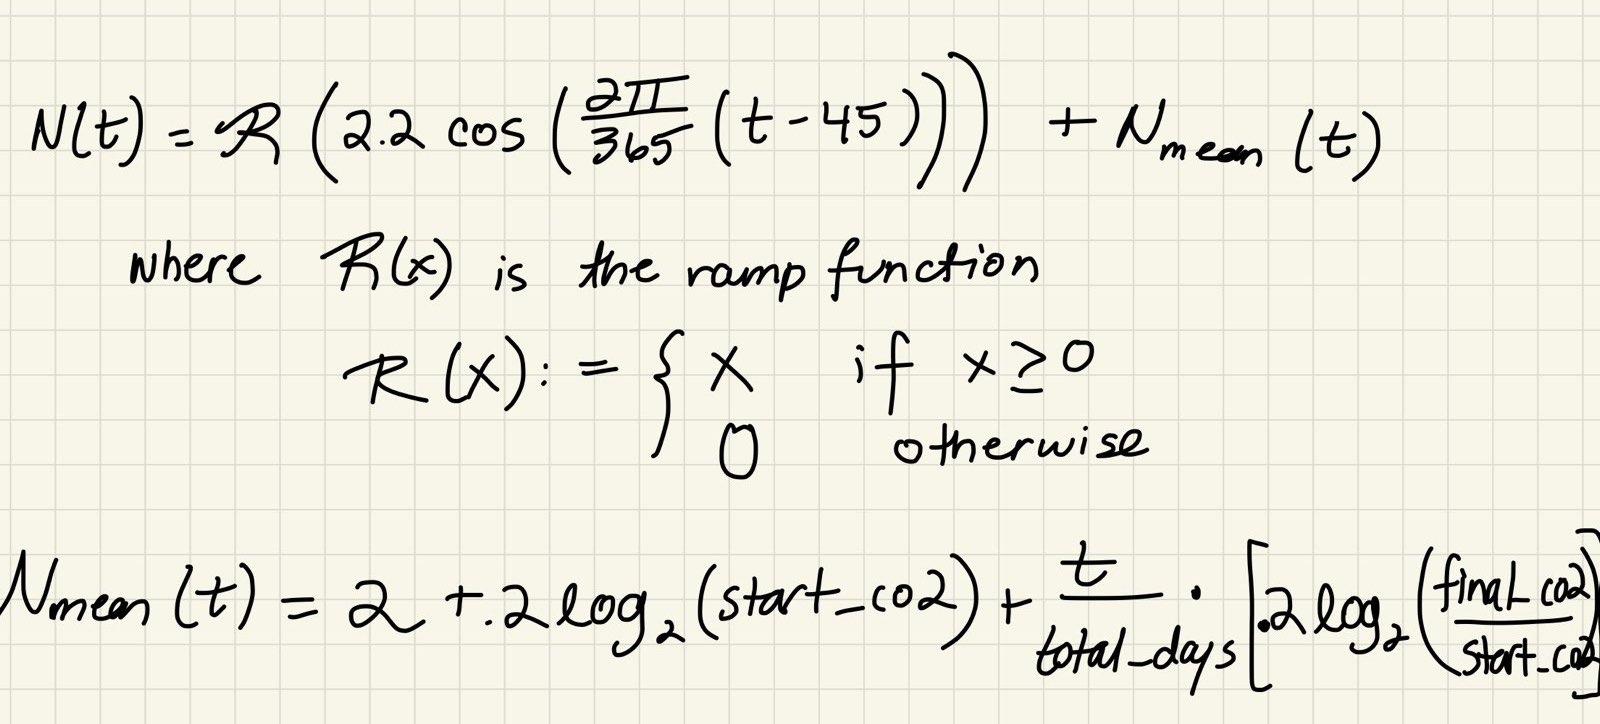 N(t) = R (2.2 cos (2π/365 (t - 45))) + N_mean (t)
where R(x) is the ramp function
R(x) := { x if x ≥ 0
0 otherwise
N_mean (t) = 2 + .2 log_2 (start_co2) + t/total_days · [.2 log_2 (final_co2/start_co2)]